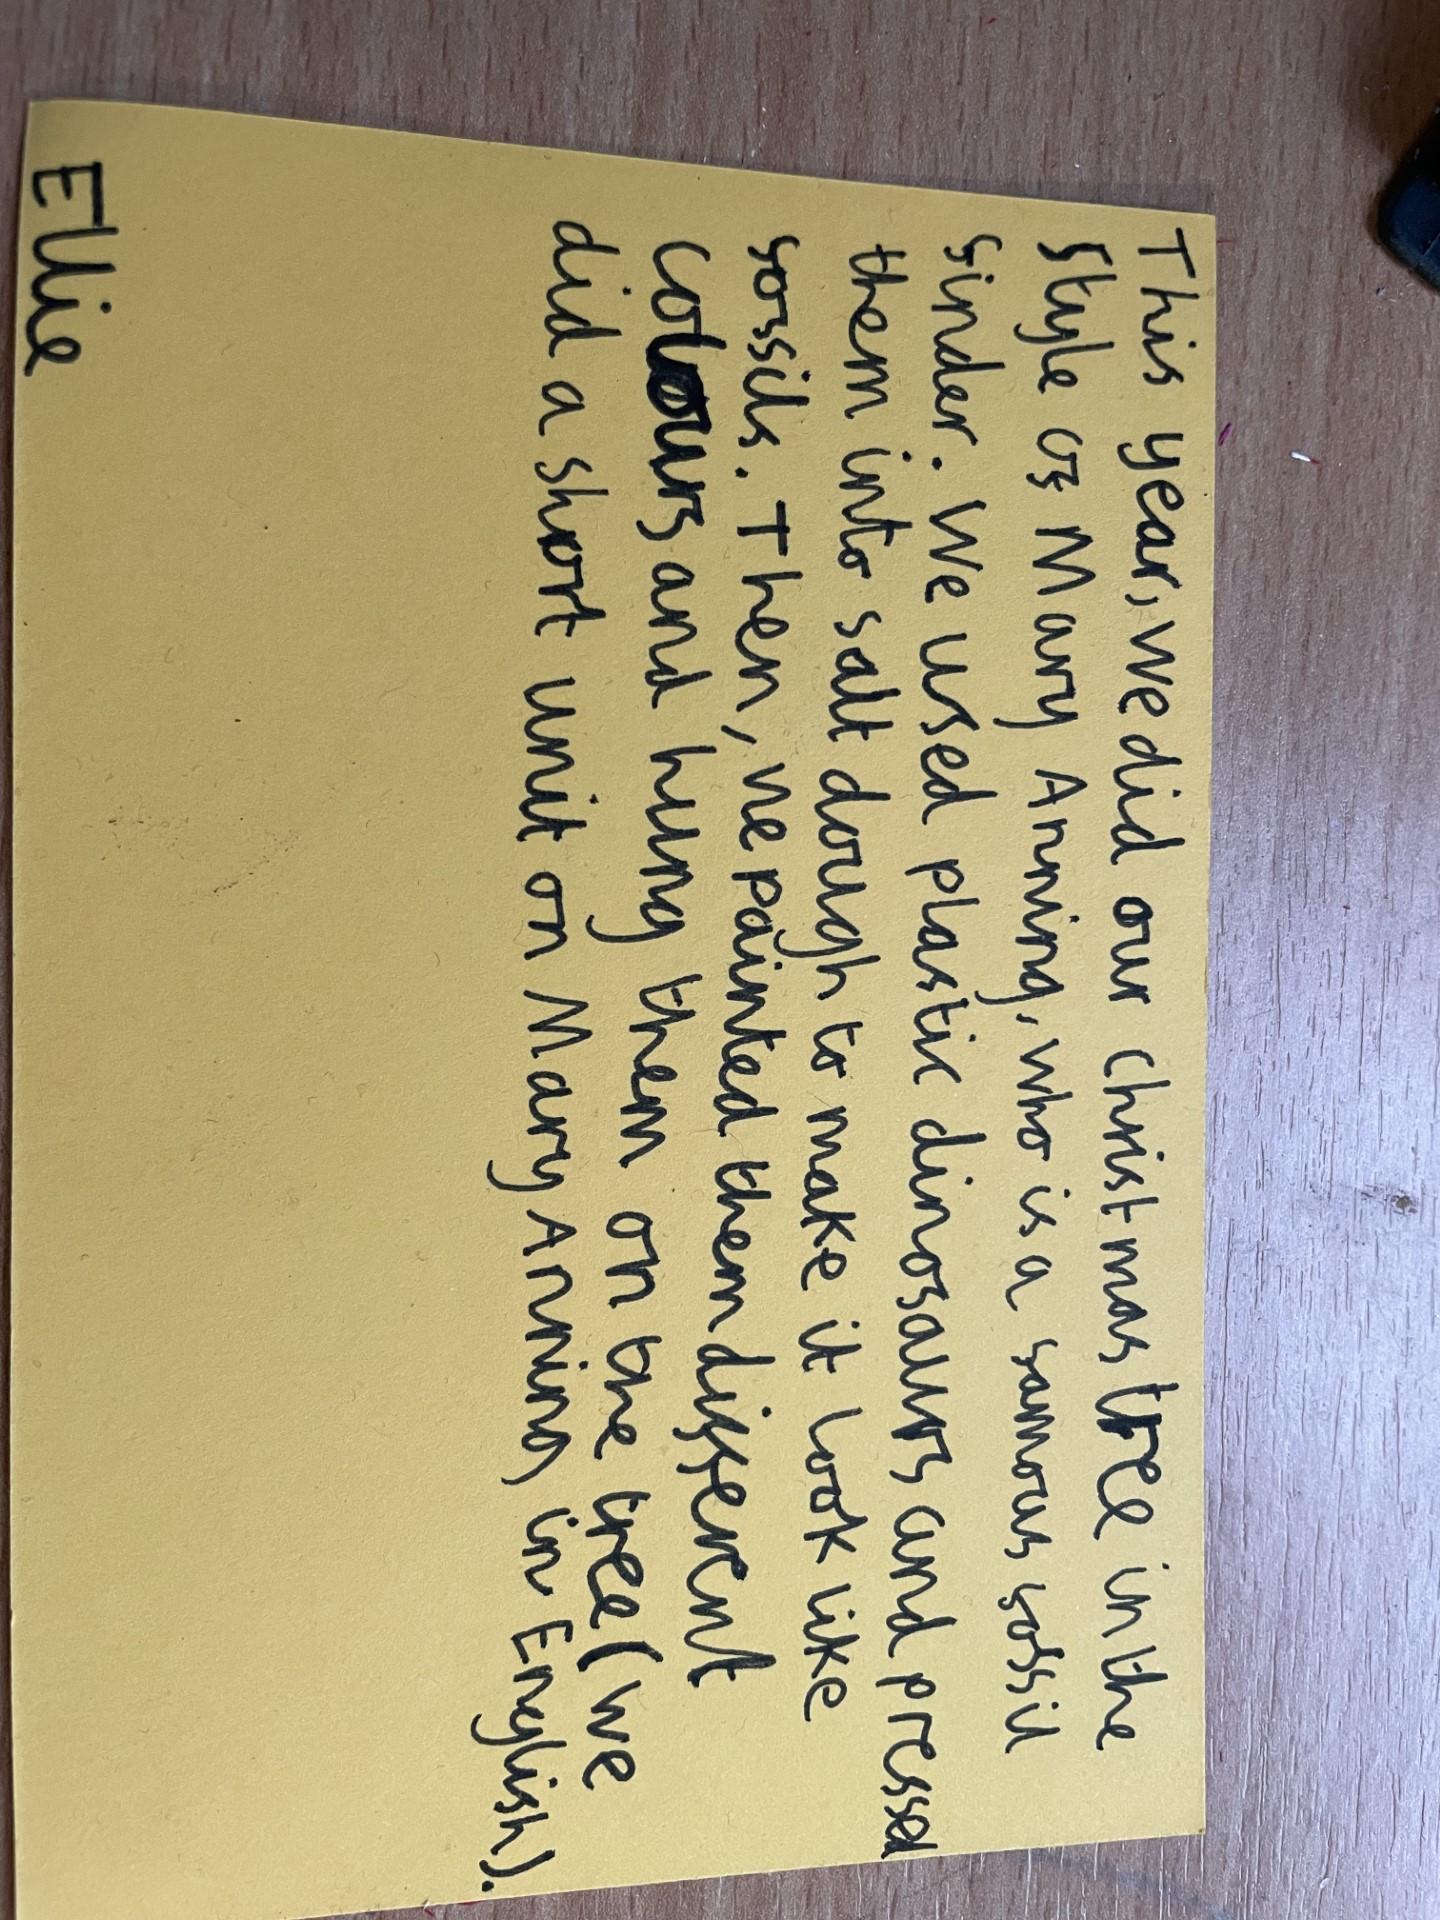 This year, we did our christmas tree in the
style of Mary Anning, who is a famous fossil
finder. We used plastic dinosaurs and pressed
them into salt dough to make it look like
fossils. Then, we painted them different
colours and hung them on the tree (we
did a short unit on Mary Anning in English).
Ellie